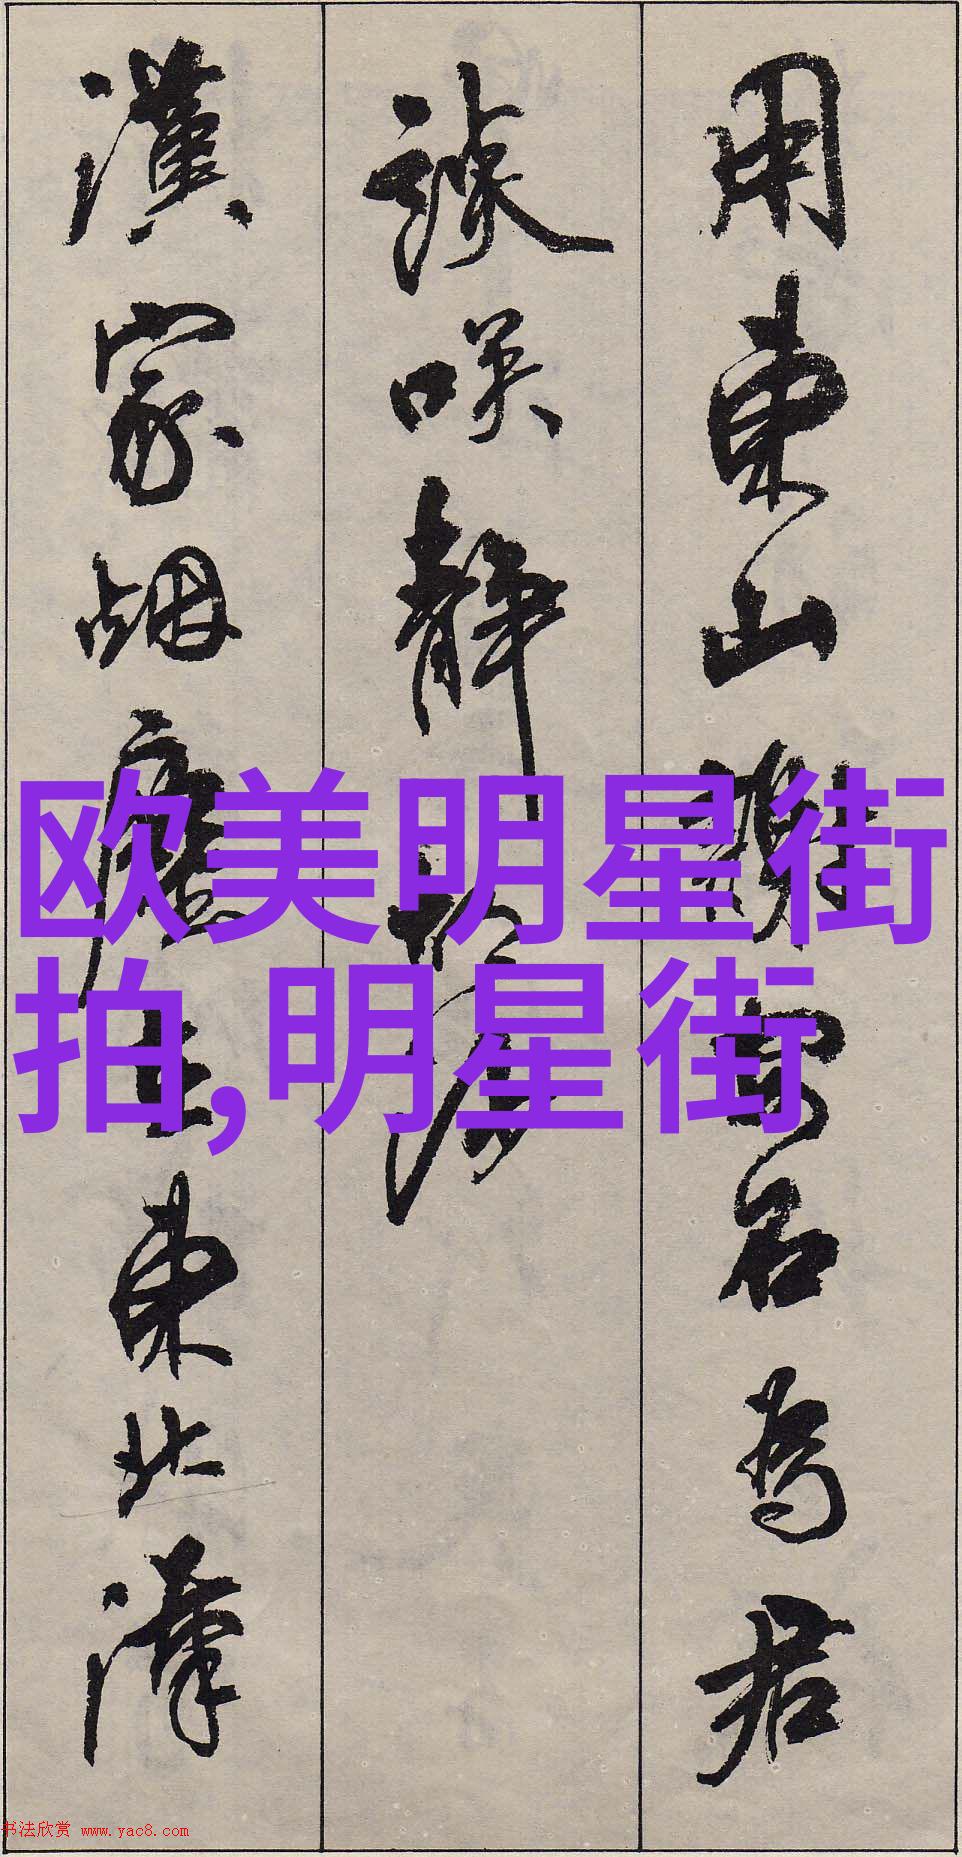 用東山謝安石為君
談咲靜胡沙
漢家烟塵在東北漢
欧美明星街
拍,明星街
书法欣赏 www.yac8.com